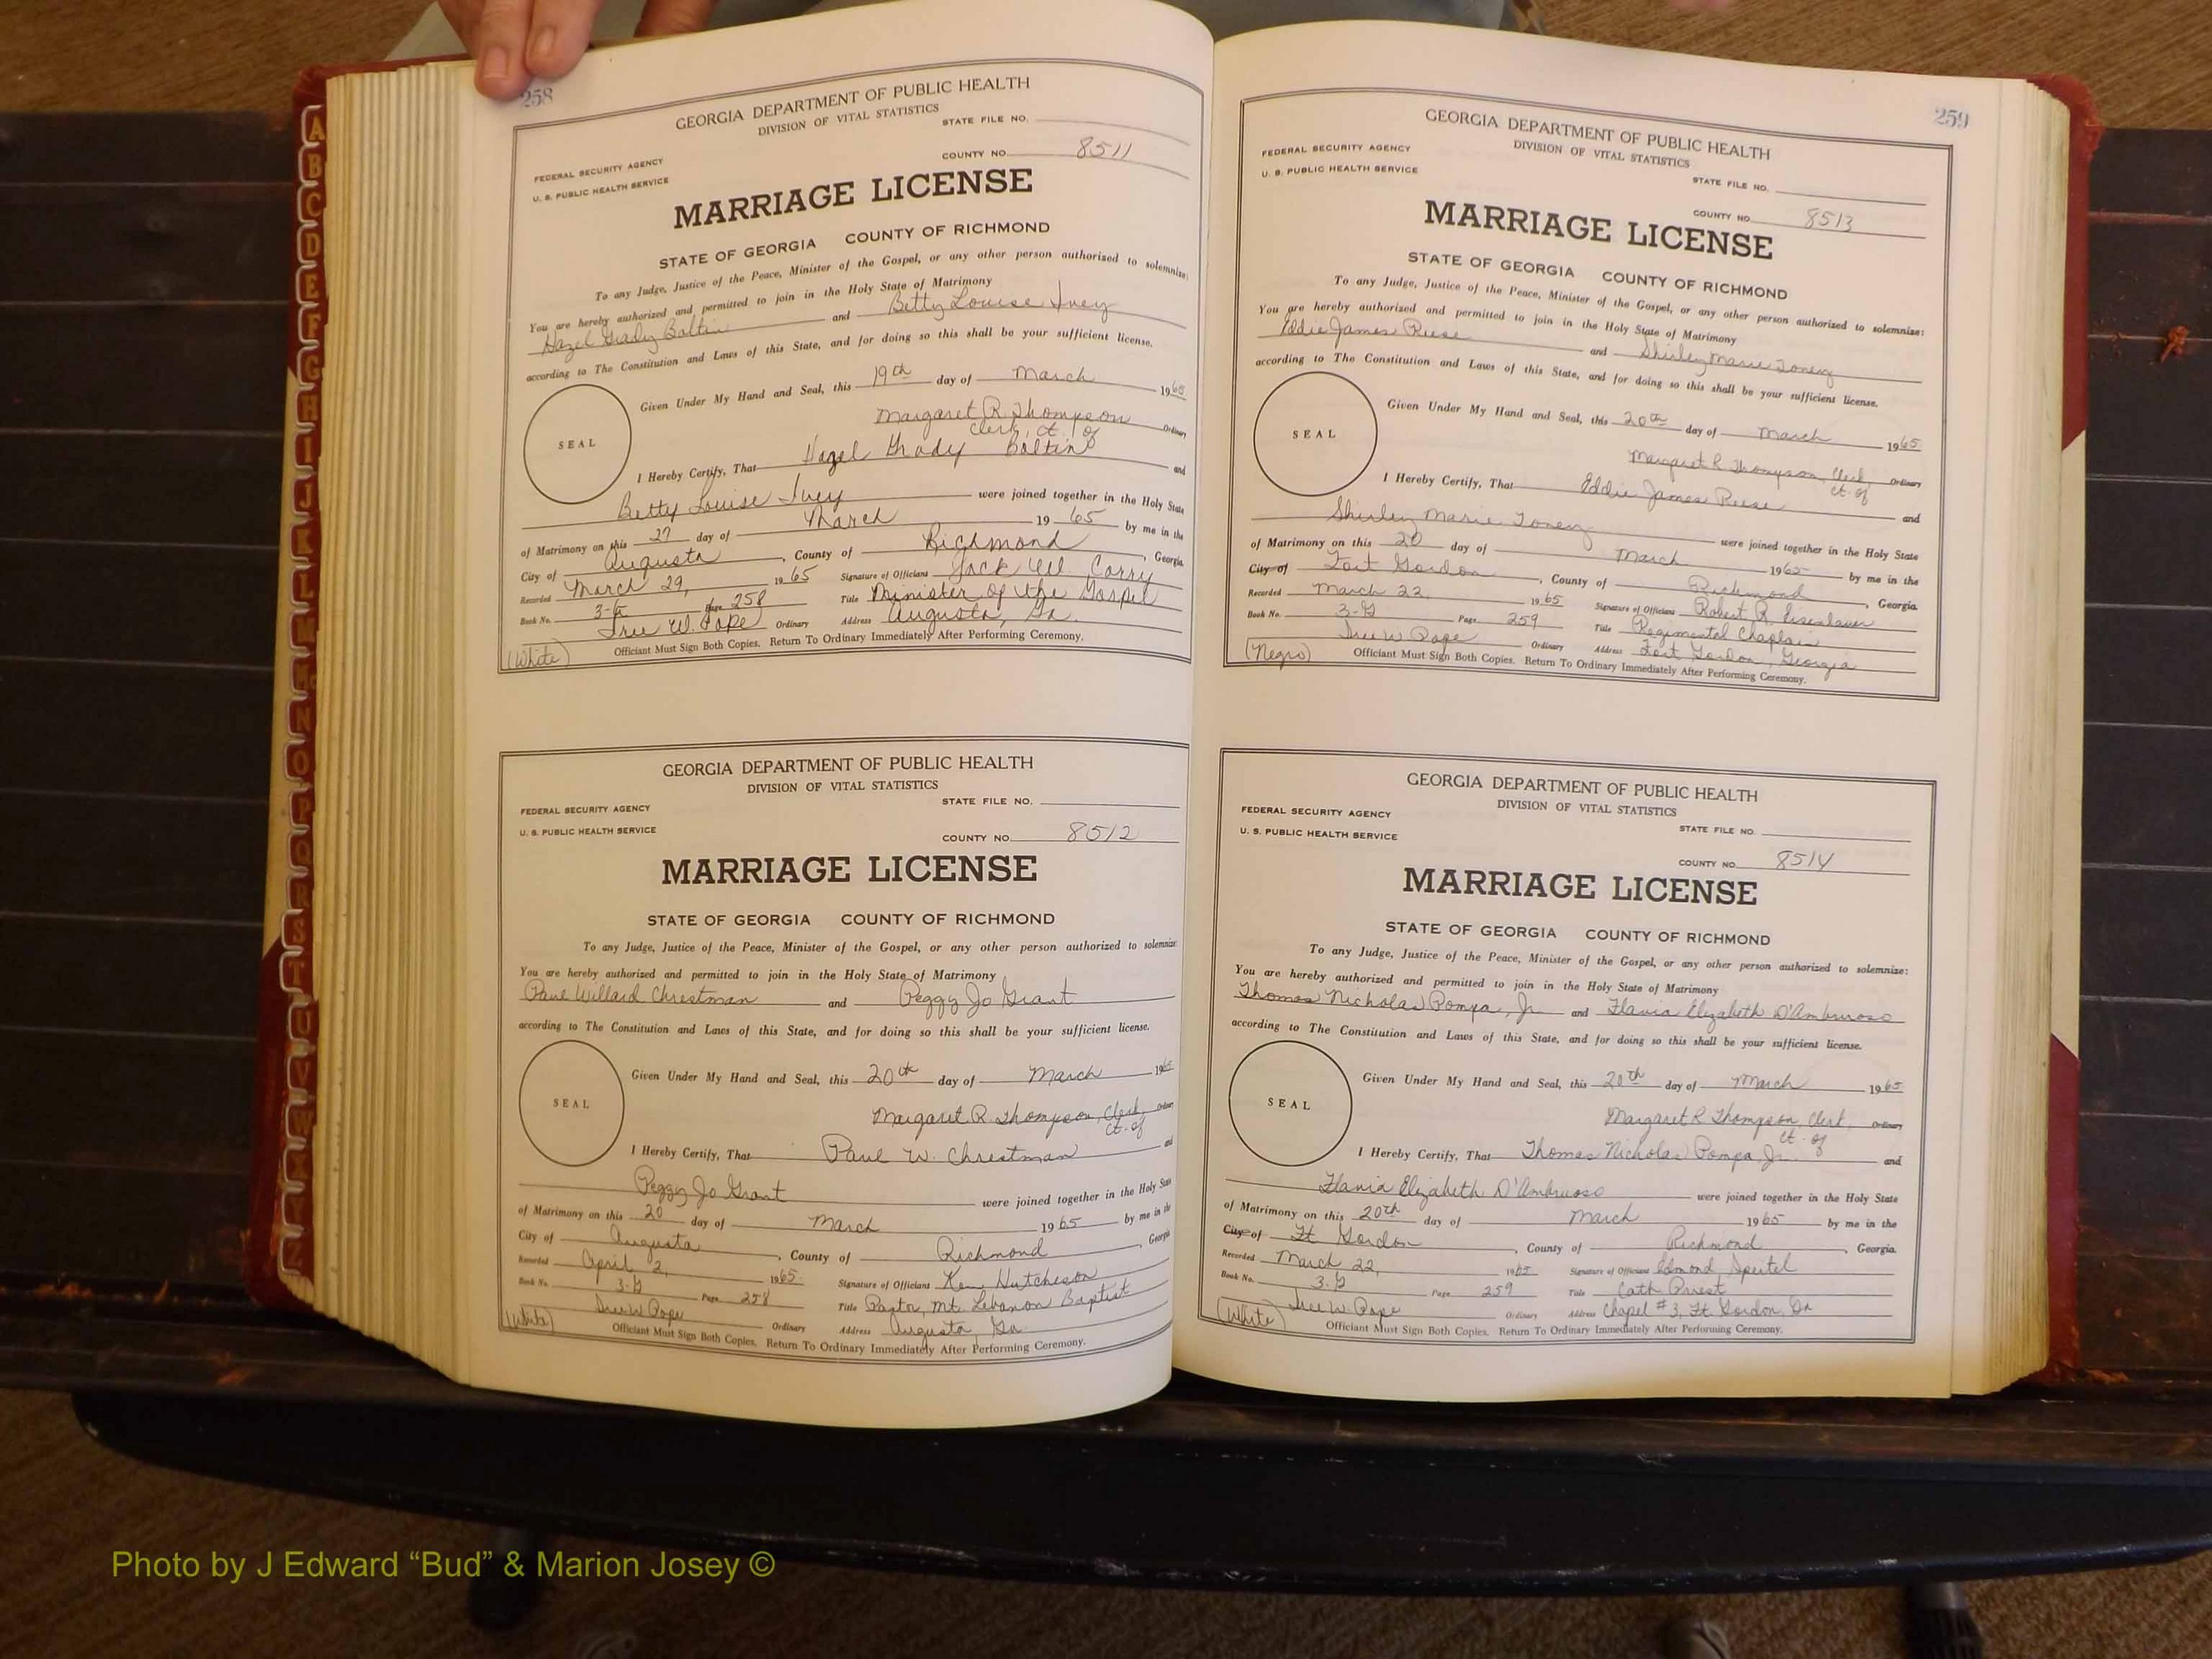 258
GEORGIA DEPARTMENT OF PUBLIC HEALTH
DIVISION OF VITAL STATISTICS
STATE FILE NO.
FEDERAL SECURITY AGENCY
COUNTY NO. 8511
U. S. PUBLIC HEALTH SERVICE
MARRIAGE LICENSE
STATE OF GEORGIA COUNTY OF RICHMOND
To any Judge, Justice of the Peace, Minister of the Gospel, or any other person authorized to solemnize:
You are hereby authorized and permitted to join in the Holy State of Matrimony
Hazel Grady Baltin and Betty Louise Ivey
according to The Constitution and Laws of this State, and for doing so this shall be your sufficient license.
Given Under My Hand and Seal, this 19th day of March 1965
SEAL
Margaret R. Thompson Ordinary
Clerk, Ct. of
I Hereby Certify, That Hazel Grady Baltin and
Betty Louise Ivey were joined together in the Holy State
of Matrimony on this 27 day of March 19 65 by me in the
City of Augusta, County of Richmond, Georgia
Recorded March 29, 19 65 Signature of Officiant Jack W. Corry
Book No. 3-G Page 258 Title Minister of the Gospel
W. Pope Ordinary Address Augusta, Ga.
(White) Officiant Must Sign Both Copies. Return To Ordinary Immediately After Performing Ceremony.
GEORGIA DEPARTMENT OF PUBLIC HEALTH
DIVISION OF VITAL STATISTICS
FEDERAL SECURITY AGENCY
STATE FILE NO.
U. S. PUBLIC HEALTH SERVICE
COUNTY NO. 8512
MARRIAGE LICENSE
STATE OF GEORGIA COUNTY OF RICHMOND
To any Judge, Justice of the Peace, Minister of the Gospel, or any other person authorized to solemnize
You are hereby authorized and permitted to join in the Holy State of Matrimony
Paul Willard Chrestman and Peggy Jo Grant
according to The Constitution and Laws of this State, and for doing so this shall be your sufficient license.
Given Under My Hand and Seal, this 20th day of March 1965
SEAL
Margaret R. Thompson, Clerk, Ordinary
Ct. of
I Hereby Certify, That Paul W. Chrestman and
Peggy Jo Grant were joined together in the Holy State
of Matrimony on this 20 day of March 19 65 by me in the
City of Augusta, County of Richmond, Georgia
Recorded April 2, 1965 Signature of Officiant Ken Hutcheson
Book No. 3-G Page 258 Title Pastor, Mt. Lebanon Baptist
W. Pope Ordinary Address Augusta, Ga.
(White) Officiant Must Sign Both Copies. Return To Ordinary Immediately After Performing Ceremony.
259
GEORGIA DEPARTMENT OF PUBLIC HEALTH
DIVISION OF VITAL STATISTICS
FEDERAL SECURITY AGENCY
U. S. PUBLIC HEALTH SERVICE
STATE FILE NO.
COUNTY NO. 8513
MARRIAGE LICENSE
STATE OF GEORGIA COUNTY OF RICHMOND
To any Judge, Justice of the Peace, Minister of the Gospel, or any other person authorized to solemnize:
You are hereby authorized and permitted to join in the Holy State of Matrimony
Eddie James Reese and Shirley Marie Toney
according to The Constitution and Laws of this State, and for doing so this shall be your sufficient license.
Given Under My Hand and Seal, this 20th day of March 1965
SEAL
Margaret R Thompson, Clerk, Ordinary
Ct. of
I Hereby Certify, That Eddie James Reese and
Shirley Marie Toney were joined together in the Holy State
of Matrimony on this 20 day of March 1965 by me in the
City of Fort Gordon, County of Richmond, Georgia.
Recorded March 22 1965 Signature of Officiant Robert R. Eisenlauer
Book No. 3-G Page 259 Title Regimental Chaplain
W. Pope Ordinary Address Fort Gordon, Georgia
(Negro) Officiant Must Sign Both Copies. Return To Ordinary Immediately After Performing Ceremony.
GEORGIA DEPARTMENT OF PUBLIC HEALTH
DIVISION OF VITAL STATISTICS
FEDERAL SECURITY AGENCY
STATE FILE NO.
U. S. PUBLIC HEALTH SERVICE
COUNTY NO. 8514
MARRIAGE LICENSE
STATE OF GEORGIA COUNTY OF RICHMOND
To any Judge, Justice of the Peace, Minister of the Gospel, or any other person authorized to solemnize:
You are hereby authorized and permitted to join in the Holy State of Matrimony
Thomas Nicholas Pompa, Jr. and Flavia Elizabeth D'Ambruoso
according to The Constitution and Laws of this State, and for doing so this shall be your sufficient license.
Given Under My Hand and Seal, this 20th day of March 1965
SEAL
Margaret R Thompson, Clerk, Ordinary
Ct. of
I Hereby Certify, That Thomas Nicholas Pompa, Jr. and
Flavia Elizabeth D'Ambruoso were joined together in the Holy State
of Matrimony on this 20th day of March 1965 by me in the
City of Ft Gordon, County of Richmond, Georgia.
Recorded March 22, 1965 Signature of Officiant Edmond Speitel
Book No. 3-G Page 259 Title Cath Priest
W. Pope Ordinary Address Chapel #3, Ft. Gordon, Ga
(White) Officiant Must Sign Both Copies. Return To Ordinary Immediately After Performing Ceremony.
A
B
C
D
E
F
G
H
I
J
K
L
M
N
O
P
Q
R
S
T
U
V
W
X
Y
Z
Photo by J Edward “Bud” & Marion Josey ©